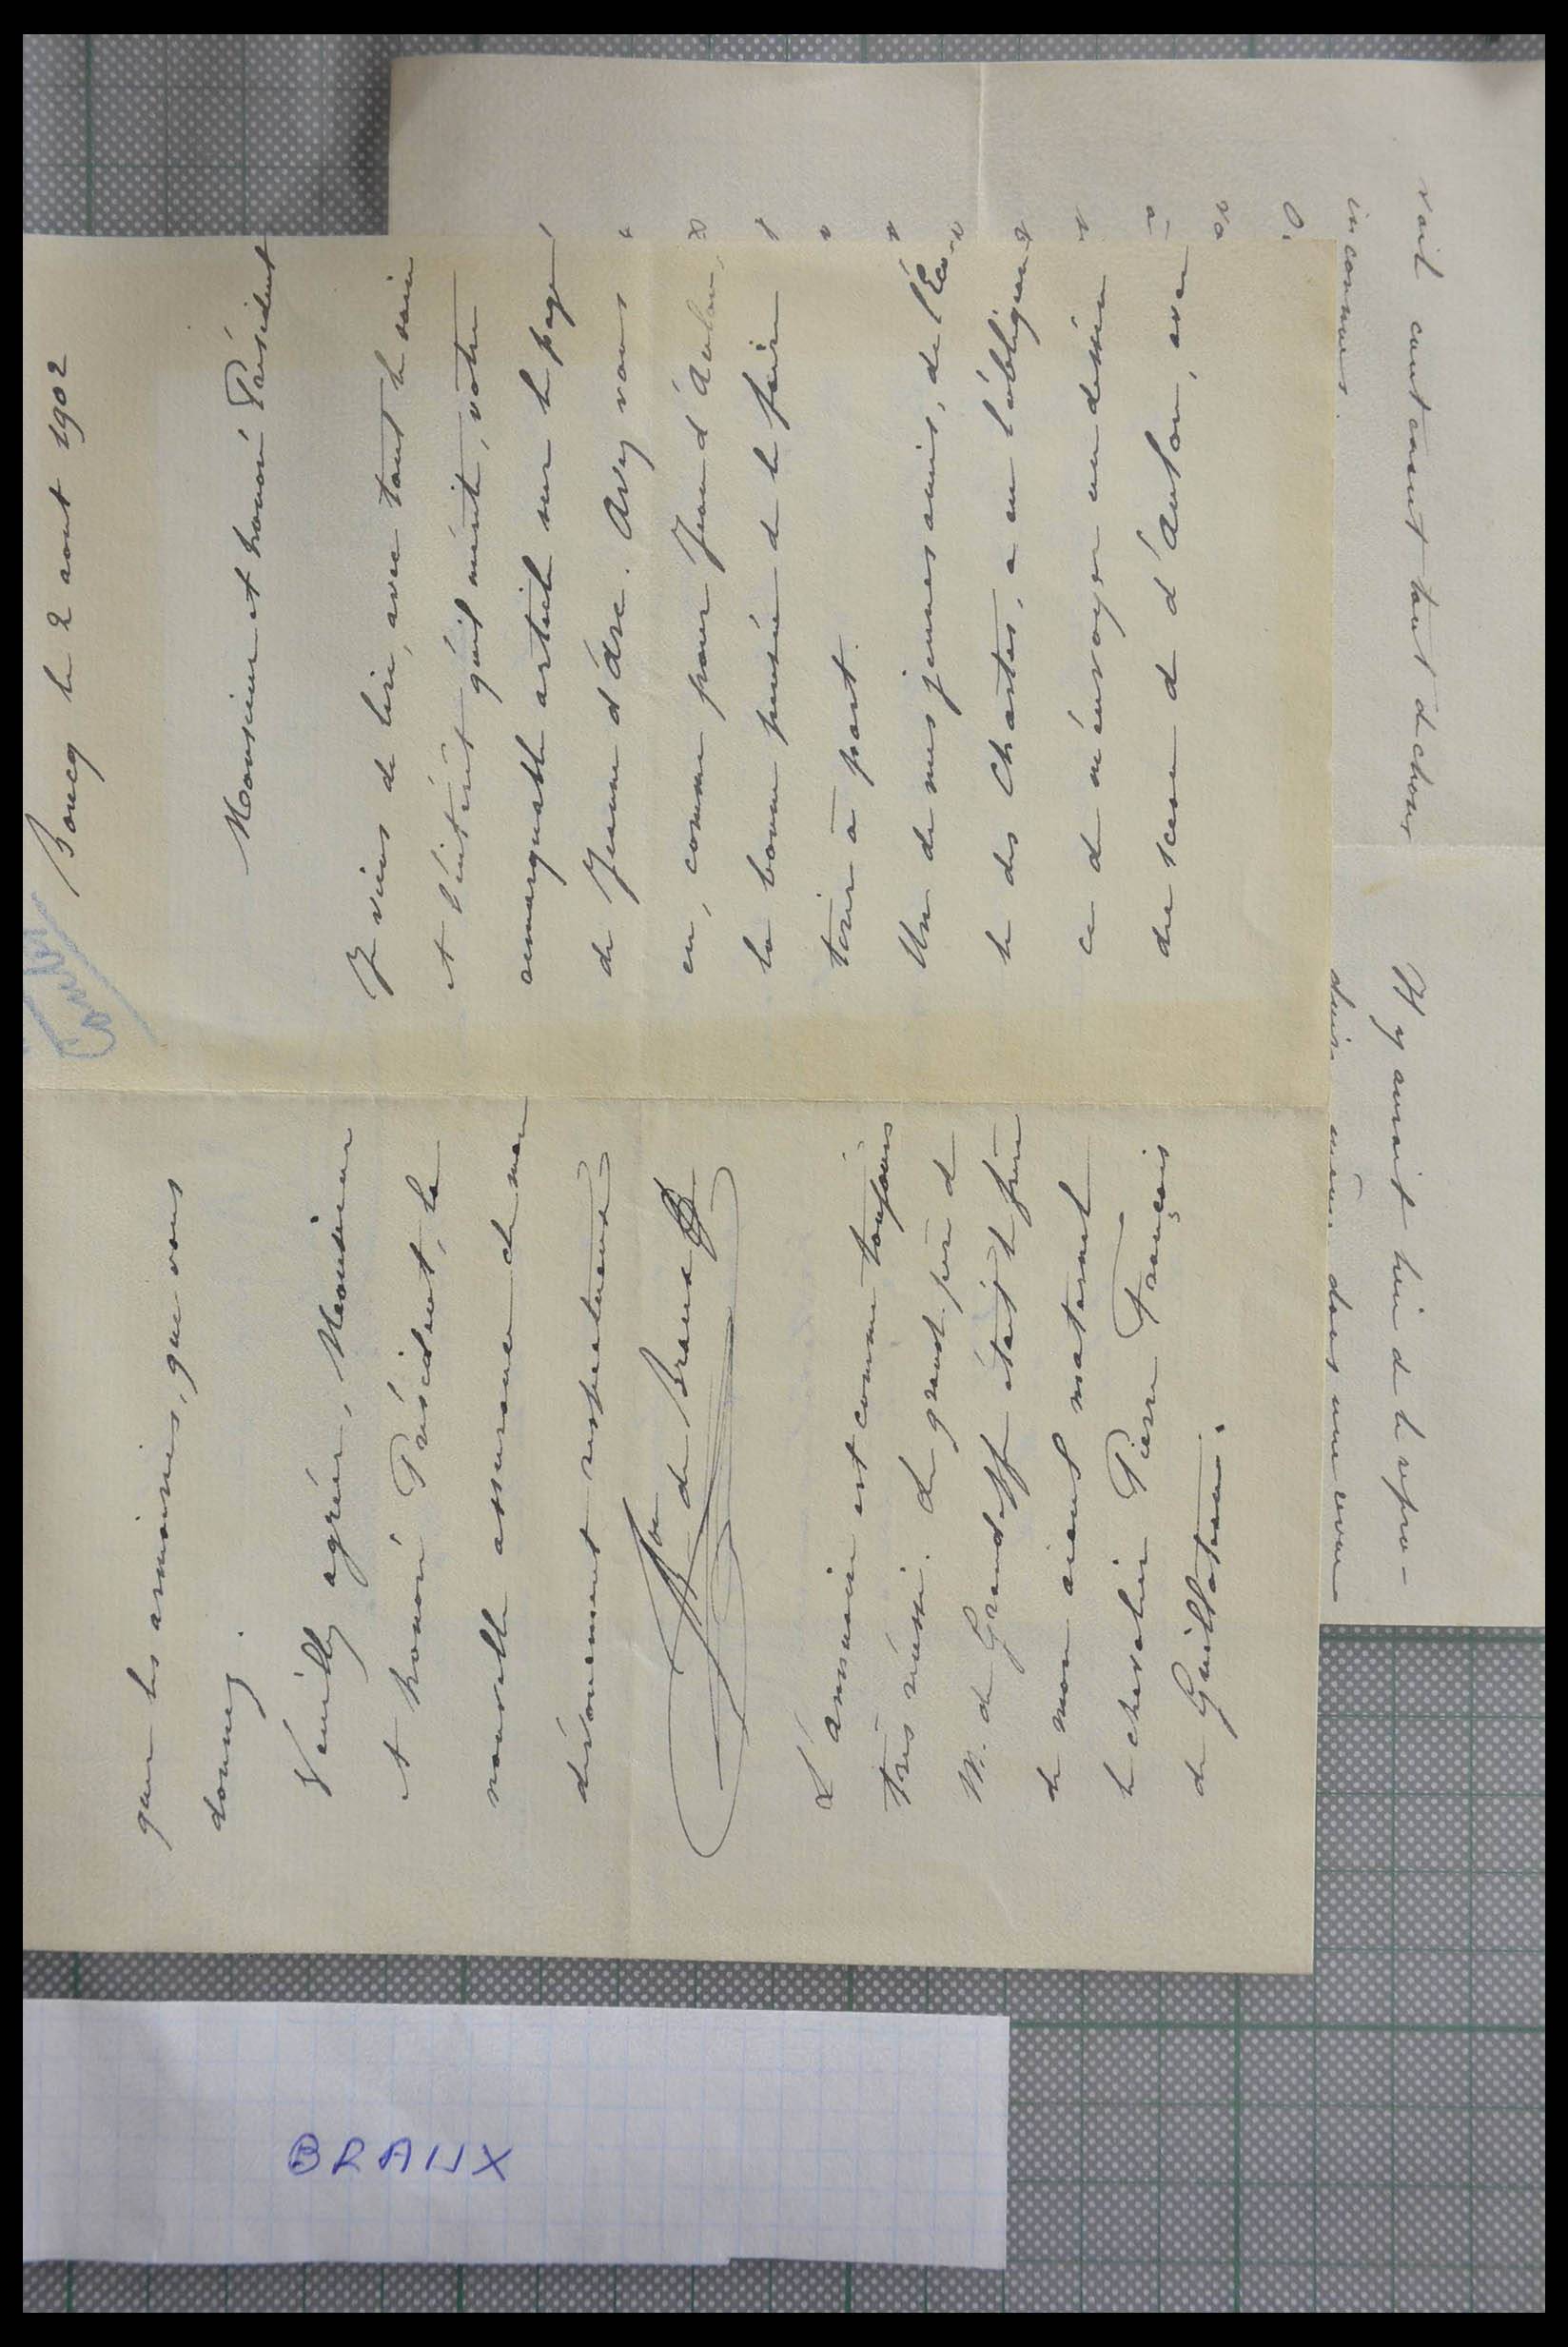 Boucq le 2 aout 1902
Monsieur et honoré Président
Je viens de lire, avec tout le soin
et l'intérêt qu'il mérite, votre
remarquable article sur le page
de Jeanne d'Arc. Avez vous
eu, comme pour Jean d'Aulon,
la bonne pensée de le faire
tirer à part.
Un de mes jeunes amis, de l'Eco
le des Chartes, a eu l'obligean
ce de m'envoyer un dessin
du sceau d d'Aulon, avec
que les armoiries, que vous
donnez.
Veuillez agréer, Monsieur
et honoré Président, la
nouvelle assurance de mon
dévouement respectueux
Bon de Braux
L'annuaire est comme toujours
très réussi. Le grand père de
M. de Grandeff était le frère
de mon aieul maternel
le chevalier Pierre François
de Guillotou.
vait contenant tout de choses
inconnues.
Il y aurait lieu de le repro-
duire dans une
BRAUX